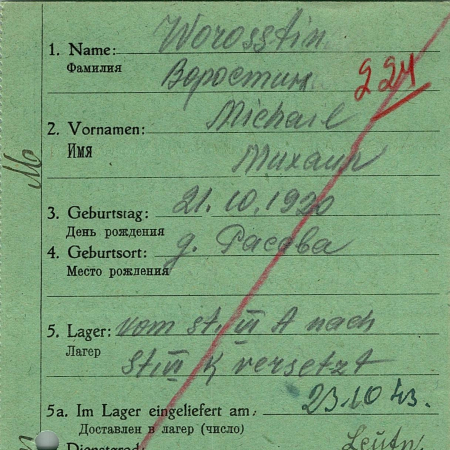 Worosstin
1. Name:
Фамилия
Воростин
224
Michael
2. Vornamen:
Имя
Михаил
3. Geburtstag: 21.10.1920
День рождения
4. Geburtsort: д. Расова
Место рождения
5. Lager: vom St. III A nach
Лагер
St. III K versetzt
5a. Im Lager eingeliefert am: 23.10.43.
Доставлен в лагер (число)
Dienstgrad: Leutn.